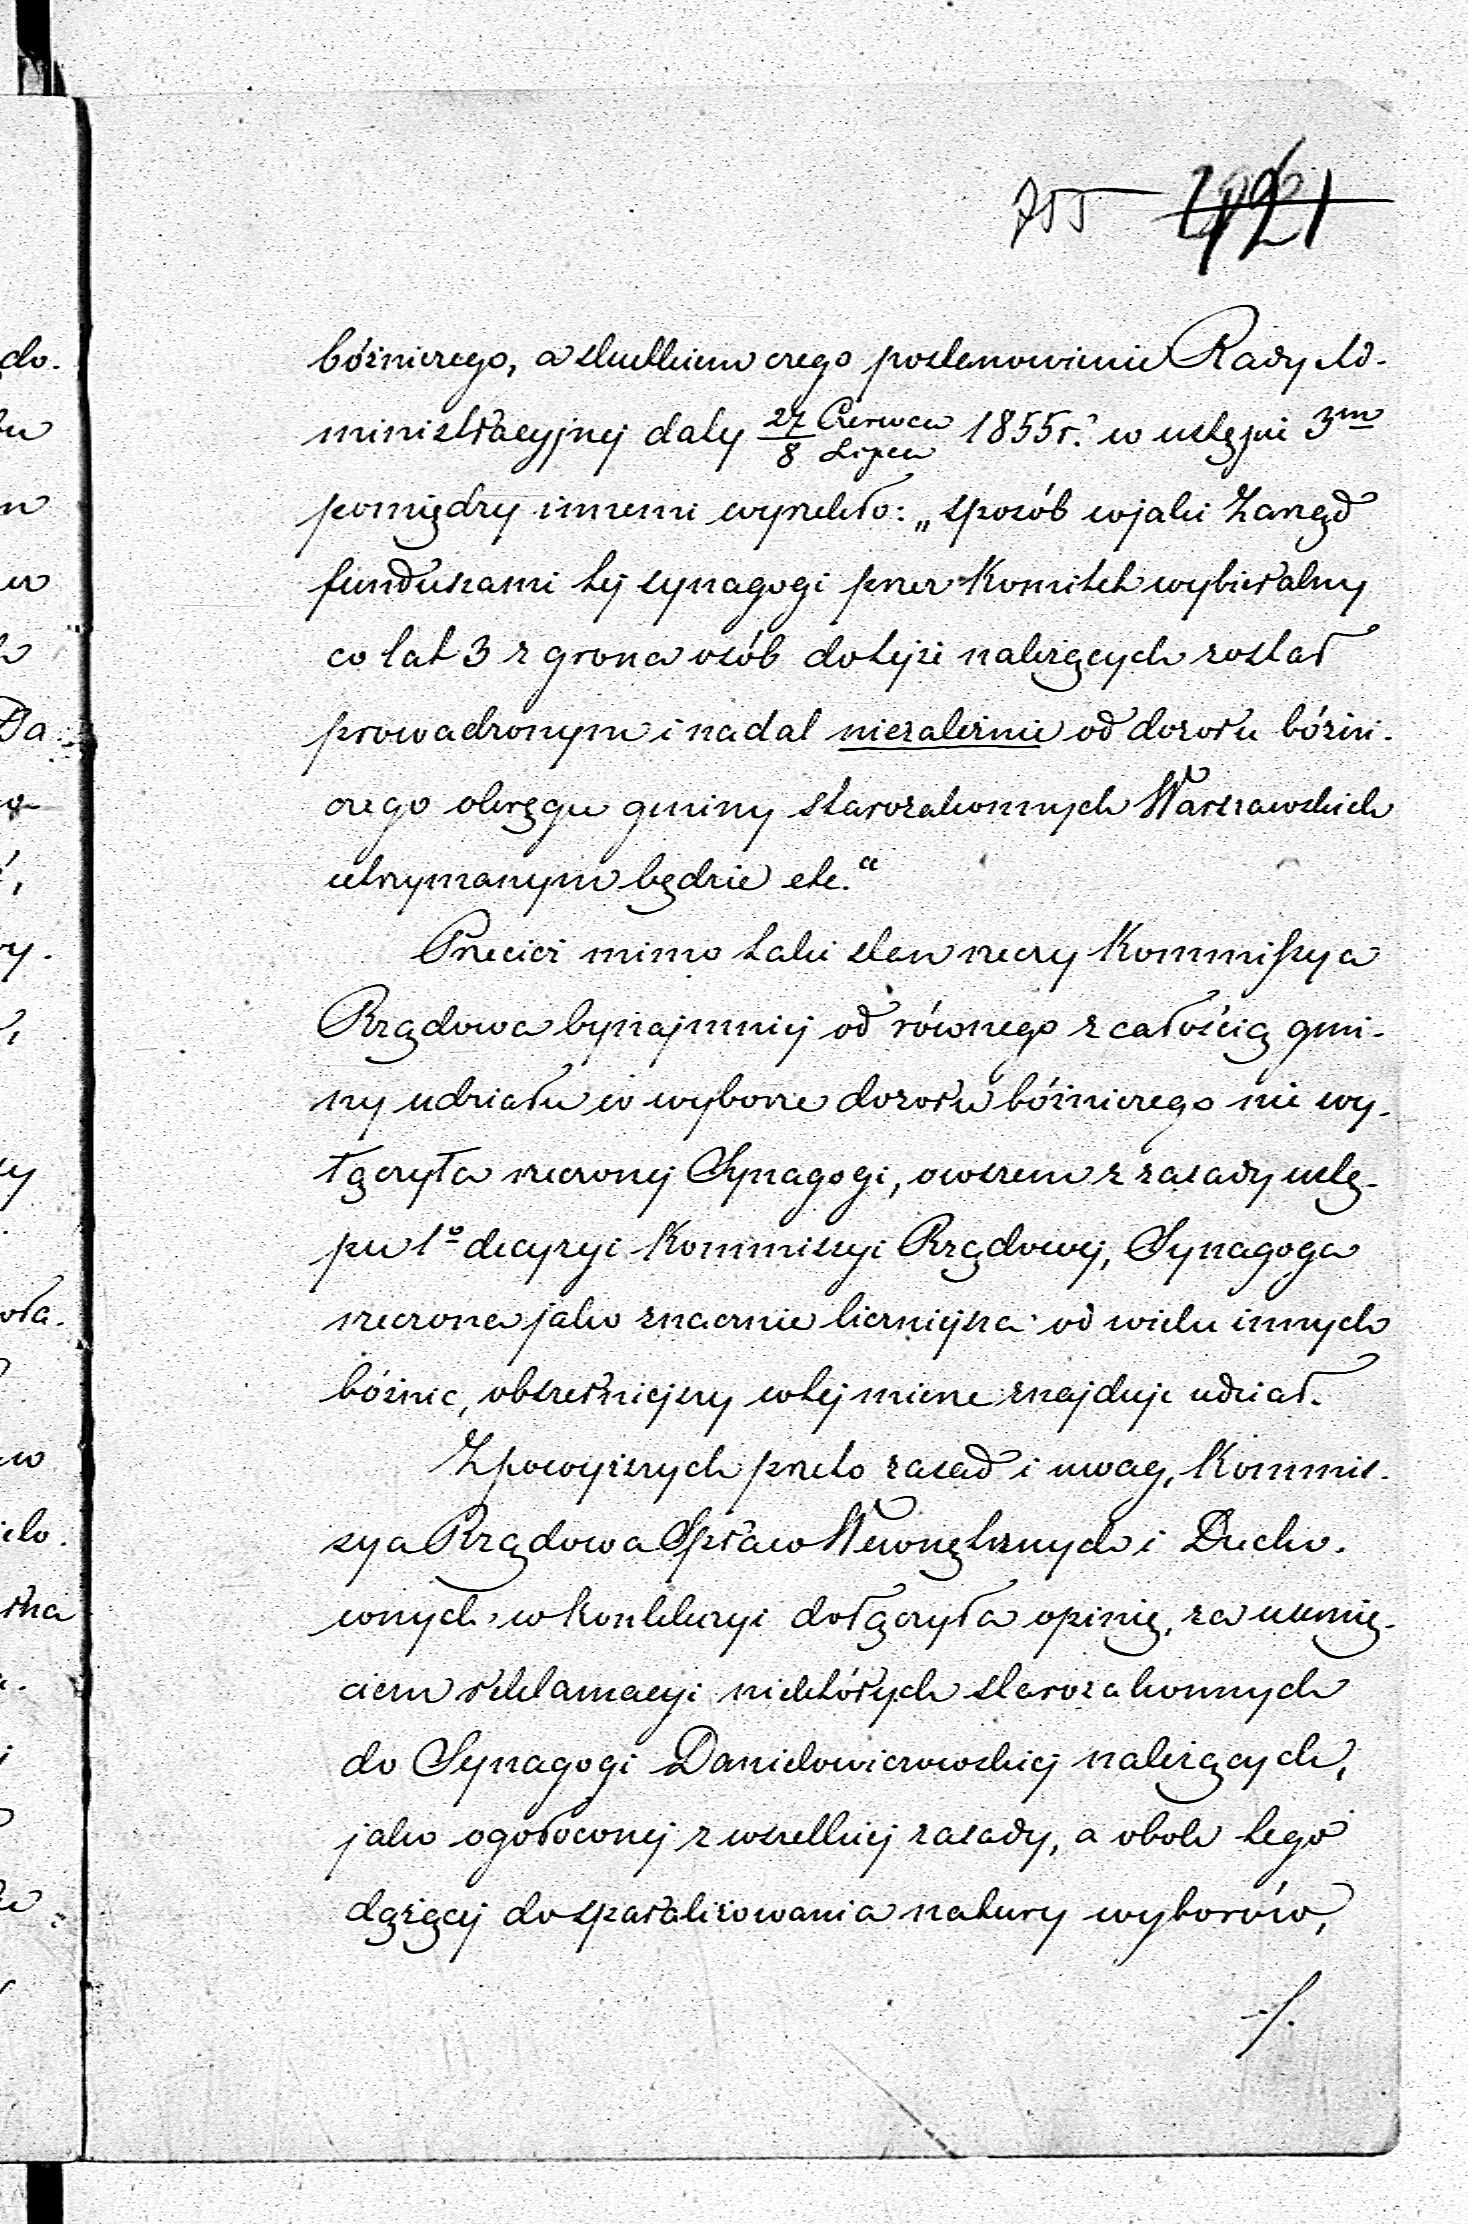 755 1121
bóżniczego, a skutkiem czego postanowienie Rady Ad-
ministracyjnej daty 27 Czerwca / 8 Lipca 1855 r. w ustępie 3m
pomiędzy innemi wyrzekło: „sposób w jaki Zarząd
funduszami tej synagogi przez Komitet wybieralny
co lat 3 z grona osób do tejże należących został
prowadzonym i nadal niezależnie od dozoru bóżni-
czego okręgu gminy starozakonnych Warszawskich
utrzymanym będzie etc.“
Przecież mimo taki stan rzeczy Kommissya
Rządowa bynajmniej od równego z całością gmi-
ny udziału w wyborze dozoru bóżniczego nie wy-
łączyła rzeczonej Synagogi, owszem z zasady ustę-
pu 1o decyzyi Kommissyi Rządowej, Synagoga
rzeczona jako znacznie liczniejsza od wielu innych
bóżnic, obszerniejszy w tej mierze znajduje udział.
Z powyższych przeto zasad i uwag, Kommis-
sya Rządowa Spraw Wewnętrznych iDucho-
wnych w konkluzyi dołączyła opinię, za usunię-
ciem reklamacyi niektórych starozakonnych
do Synagogi Daniełowiczowskiej należących,
jako ogołoconej z wszelkiej zasady, a obok tego
dążącej do sparaliżowania natury wyborów,
-/.